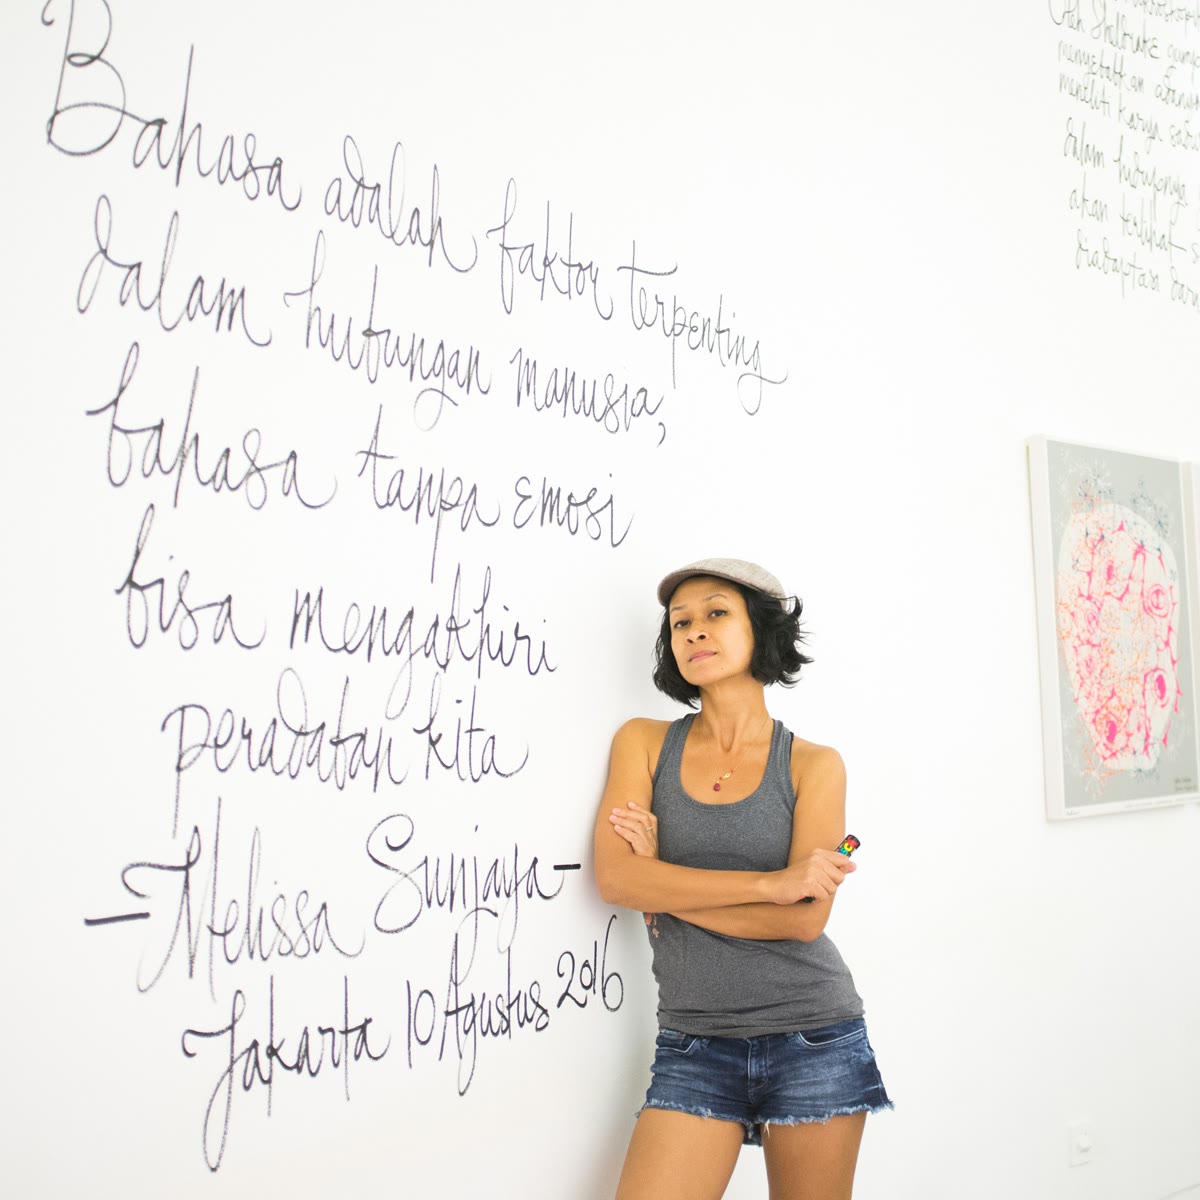 Bahasa adalah faktor terpenting
dalam hubungan manusia,
bahasa tanpa emosi
bisa mengakhiri
peradaban kita
- Melissa Sunjaya -
Jakarta 10 Agustus 2016
Oleh Sheldrake
menyebabkan
meneliti karya
dalam hidupnya
akan terlihat
diadaptasi